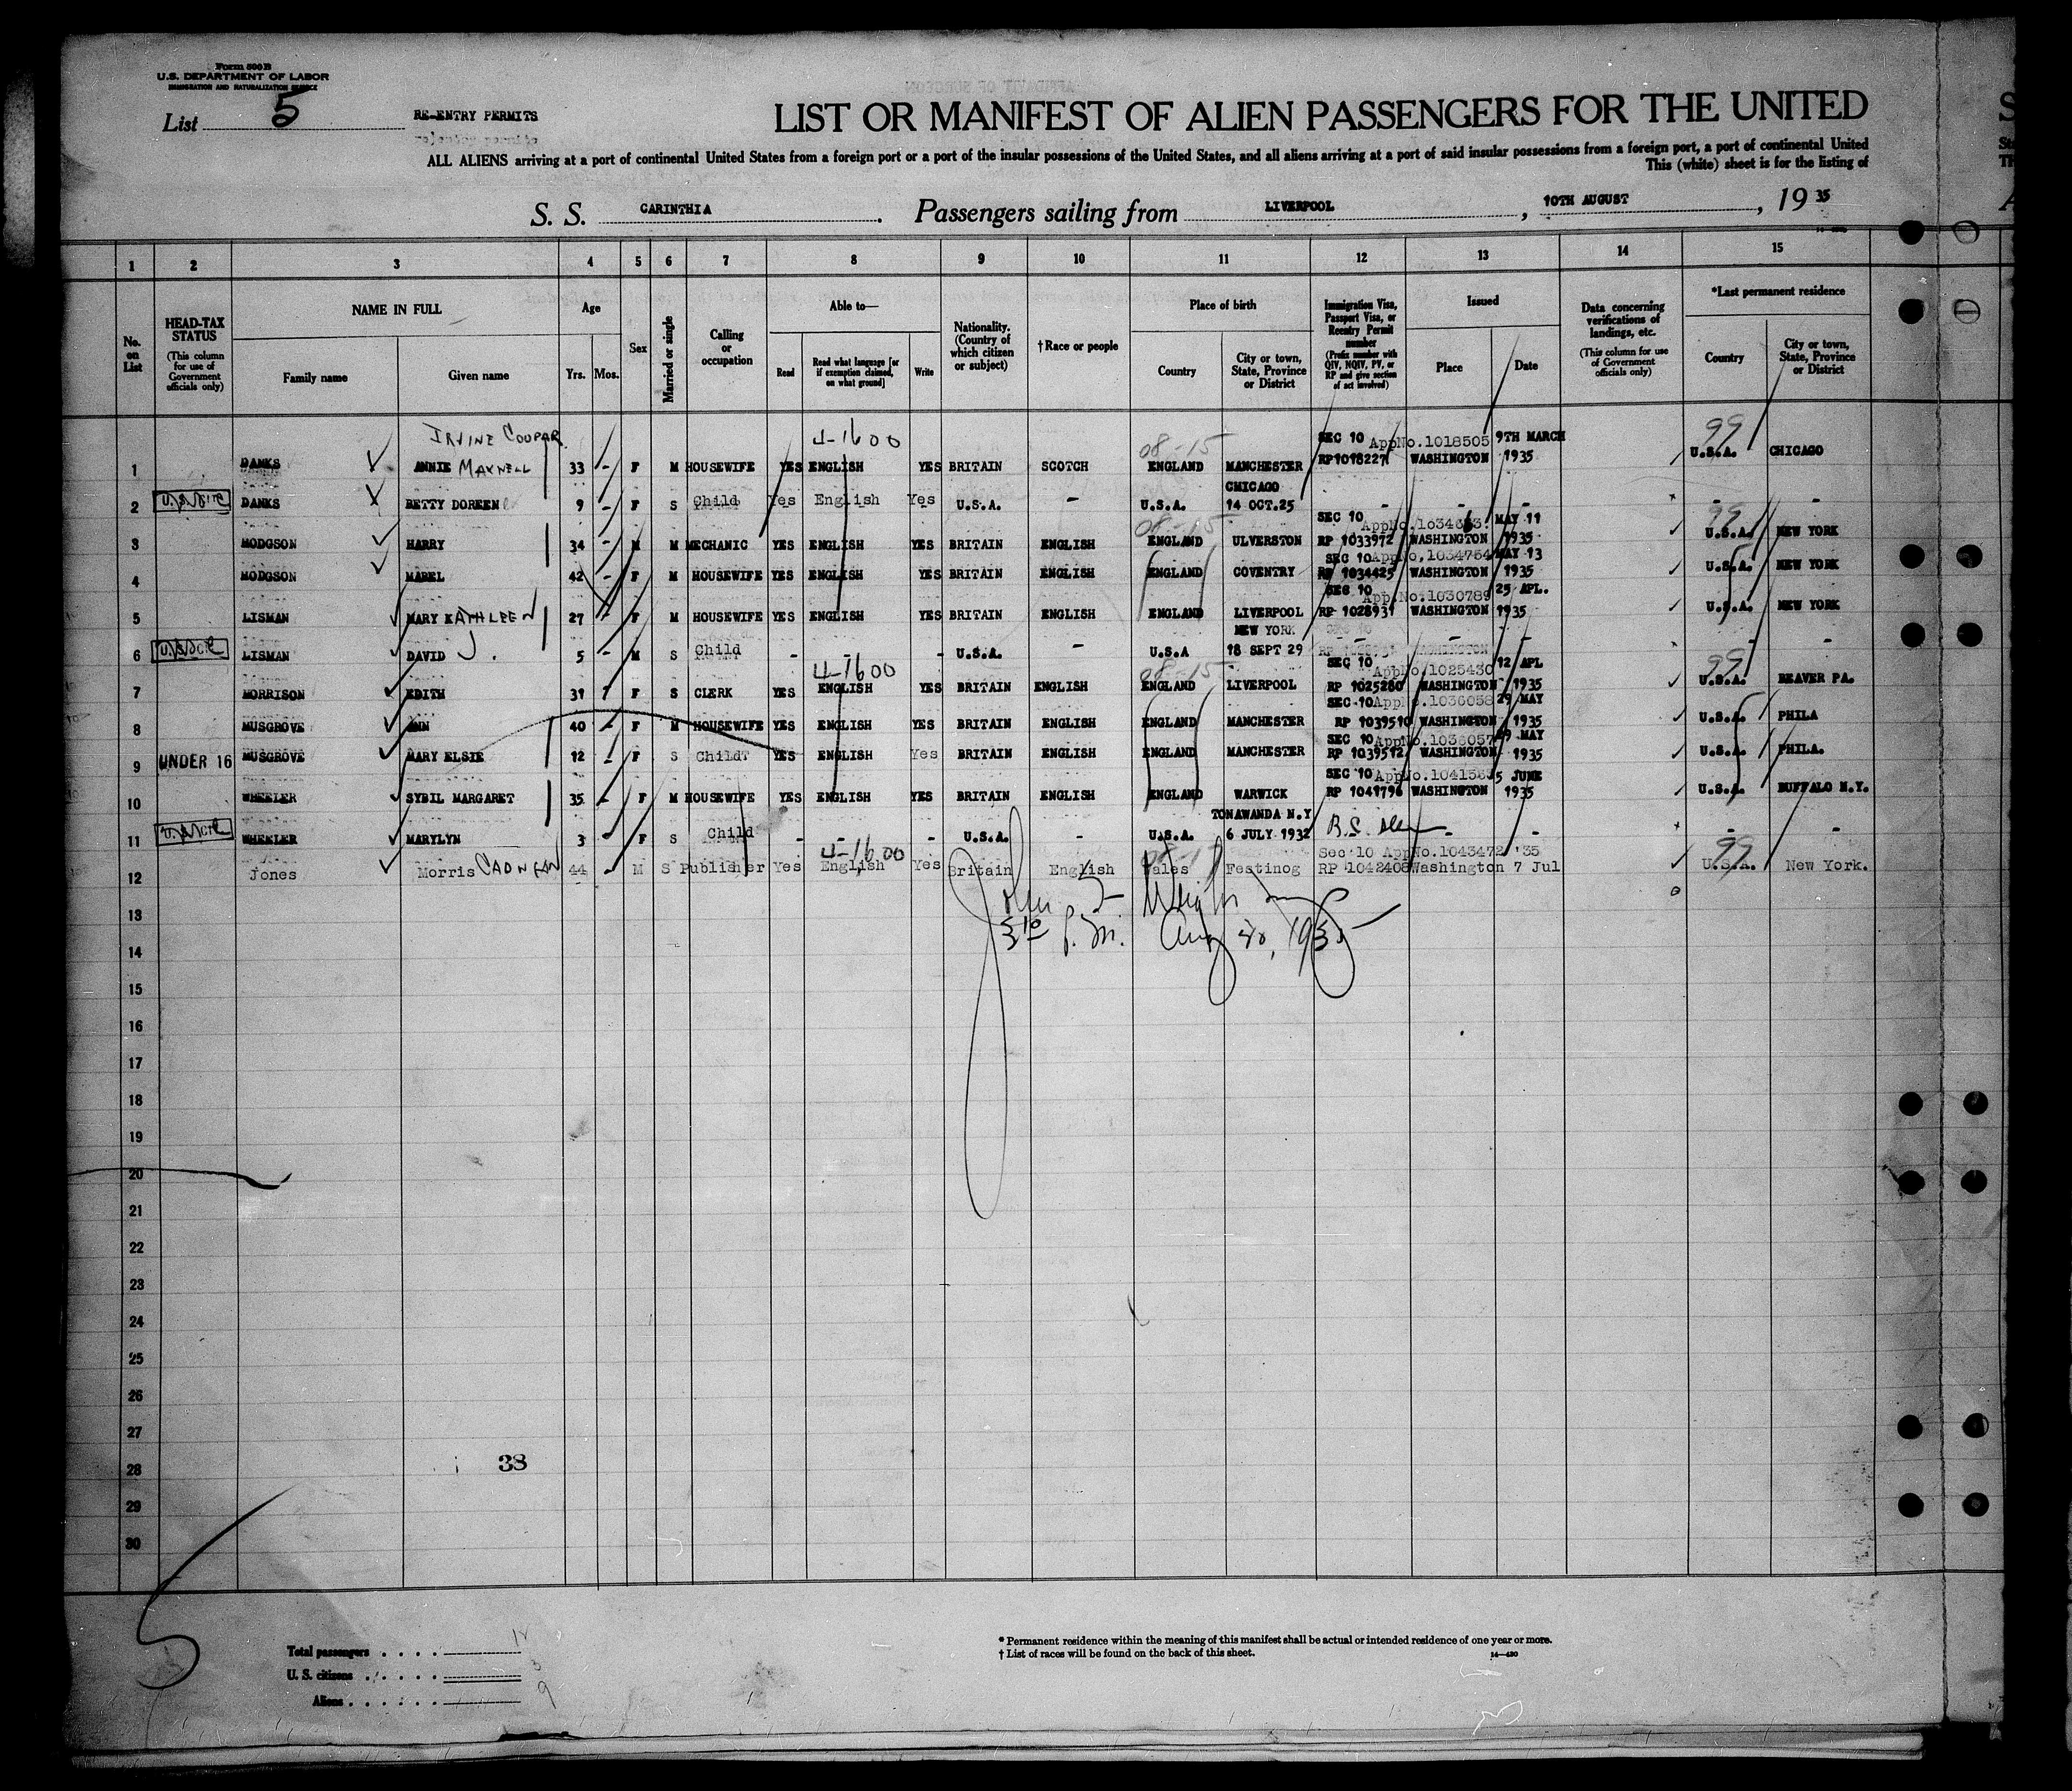 Form 500 B
U.S. DEPARTMENT OF LABOR
IMMIGRATION AND NATURALIZATION SERVICE
List 5
RE-ENTRY PERMITS
LIST OR MANIFEST OF ALIEN PASSENGERS FOR THE UNITED
ALL ALIENS arriving at a port of continental United States from a foreign port or a port of the insular possessions of the United States, and all aliens arriving at a port of said insular possessions from a foreign port, a port of continental United
This (white) sheet is for the listing of
S. S. CARINTHIA. Passengers sailing from LIVERPOOL, 10TH AUGUST, 19 35
1 2 3 4 5 6 7 8 9 10 11 12 13 14 15
No. on List
HEAD-TAX STATUS (This column for use of Government officials only)
NAME IN FULL Family name Given name
Age Yrs. Mos.
Sex
Married or single
Calling or occupation
Able to— Read Read what language [or if exemption claimed, on what ground] Write
Nationality. (Country of which citizen or subject)
†Race or people
Place of birth Country City or town, State, Province or District
Immigration Visa, Passport Visa, or Reentry Permit number (Prefix number with QIV, NQIV, PV, or RP and give section of act involved)
Issued Place Date
Data concerning verifications of landings, etc. (This column for use of Government officials only)
*Last permanent residence Country City or town, State, Province or District
IRVINE COUPAR 4-1600 08-15 SEC 10 AppNo.1018505 9TH MARCH 99
1 DANKS ANNIE MAXWELL 33 - F M HOUSEWIFE YES ENGLISH YES BRITAIN SCOTCH ENGLAND MANCHESTER RP1018227 WASHINGTON 1935 U.S.A. CHICAGO
CHICAGO
2 DANKS BETTY DOREEN 9 - F S Child Yes English Yes U.S.A. - U.S.A. 14 OCT.25 - - - - -
08-15 SEC 10 MAY 11 99
3 HODGSON HARRY 34 - M M MECHANIC YES ENGLISH YES BRITAIN ENGLISH ENGLAND ULVERSTON RP 1033972 WASHINGTON 1935 U.S.A. NEW YORK
SEC 10 AppNo.1034764 MAY 13
4 HODGSON MABEL 42 - F M HOUSEWIFE YES ENGLISH YES BRITAIN ENGLISH ENGLAND COVENTRY RP 1034425 WASHINGTON 1935 U.S.A. NEW YORK
SEC 10 App.No.1030789 25 APL.
5 LISMAN MARY KATHLEEN 27 - F M HOUSEWIFE YES ENGLISH YES BRITAIN ENGLISH ENGLAND LIVERPOOL RP 1028931 WASHINGTON 1935 U.S.A. NEW YORK
NEW YORK
6 LISMAN DAVID J. 5 - M S Child - - - U.S.A. - U.S.A 18 SEPT 29 - - - - -
4-1600 08-15 SEC 10 AppNo.1025430 12 APL 99
7 MORRISON EDITH 31 F S CLERK YES ENGLISH YES BRITAIN ENGLISH ENGLAND LIVERPOOL RP 1025280 WASHINGTON 1935 U.S.A. BEAVER PA.
SEC 10 AppNo.1036058 29 MAY
8 MUSGROVE ANN 40 - F M HOUSEWIFE YES ENGLISH YES BRITAIN ENGLISH ENGLAND MANCHESTER RP 1039510 WASHINGTON 1935 U.S.A. PHILA
SEC 10 AppNo.1036057 29 MAY
9 UNDER 16 MUSGROVE MARY ELSIE 12 - F S Child YES ENGLISH Yes BRITAIN ENGLISH ENGLAND MANCHESTER RP 1039512 WASHINGTON 1935 U.S.A. PHILA.
SEC 10 5 JUNE
10 WHEELER SYBIL MARGARET 35 - F M HOUSEWIFE YES ENGLISH YES BRITAIN ENGLISH ENGLAND WARWICK RP 1041796 WASHINGTON 1935 U.S.A. BUFFALO N.Y.
TONAWANDA N.Y
11 WHEELER MARYLYN 3 - F S Child - - - U.S.A. - U.S.A. 6 JULY 1932 - - - -
4-1600 Sec 10 AppNo.1043472 '35 99
12 Jones Morris CADWGAN 44 - M S Publisher Yes English Yes Britain English Wales Festinog RP 1042408 Washington 7 Jul U.S.A. New York.
13
3 10 P.M. Aug 20, 1935
14
15
16
17
18
19
20
21
22
23
24
25
26
27
28
38
29
30
Total passengers 12
U. S. citizens 3
Aliens 9
* Permanent residence within the meaning of this manifest shall be actual or intended residence of one year or more.
† List of races will be found on the back of this sheet.
14—430